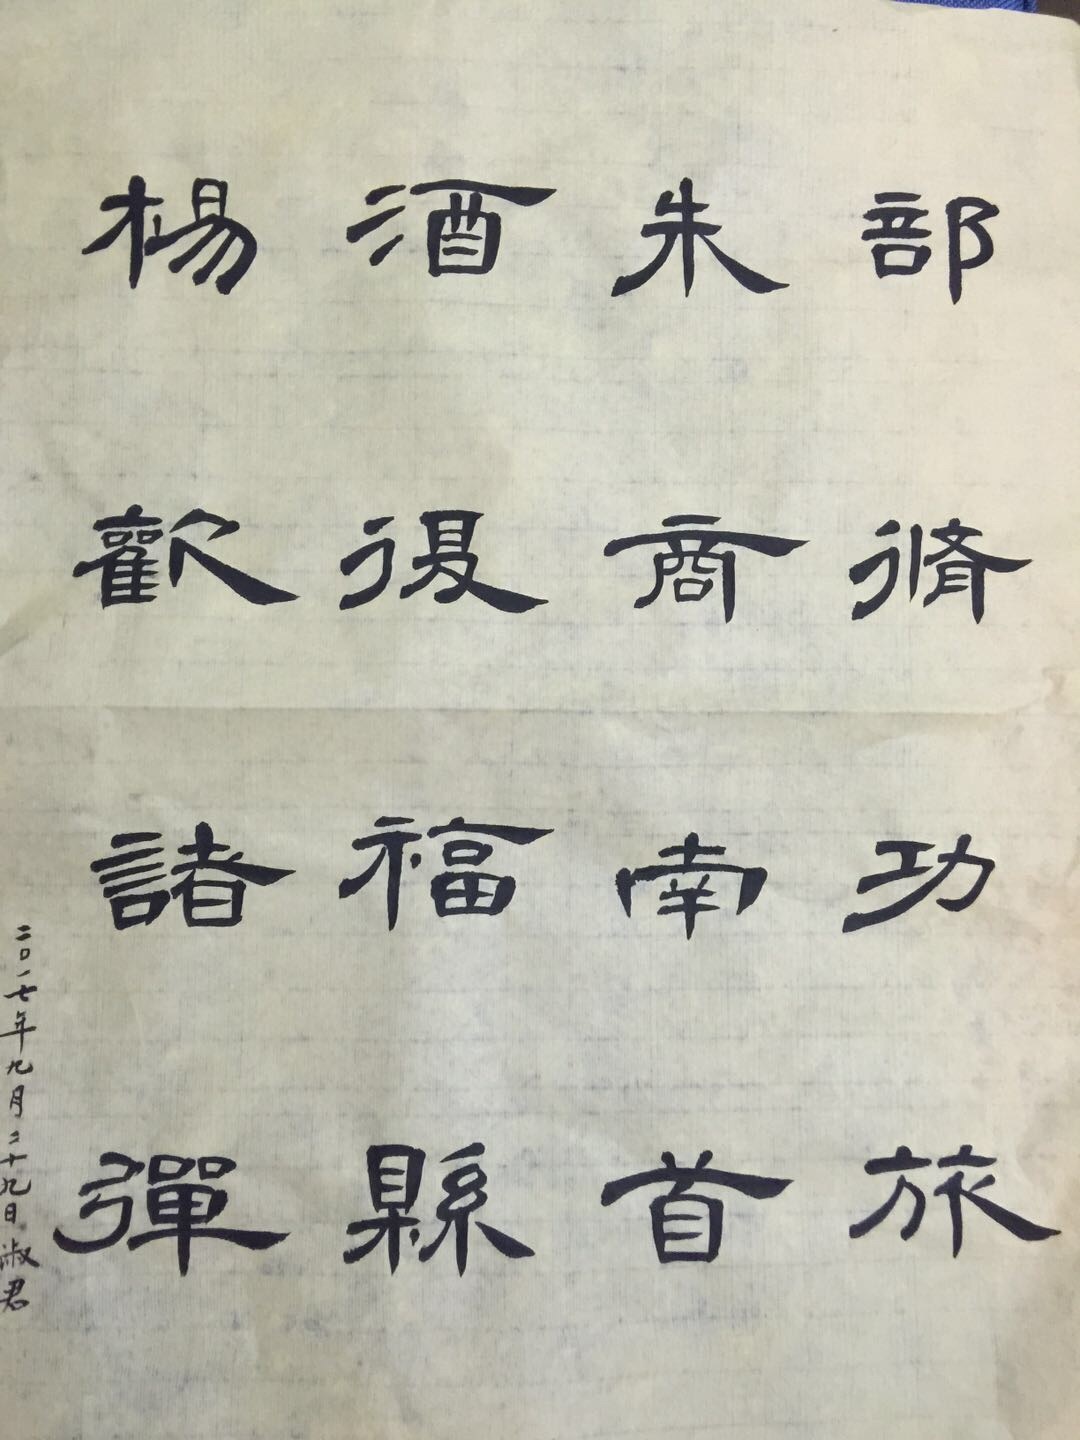 部脩功旅
朱商南首
酒復福縣
楊歡諸彈
二〇一七年九月二十九日淑君